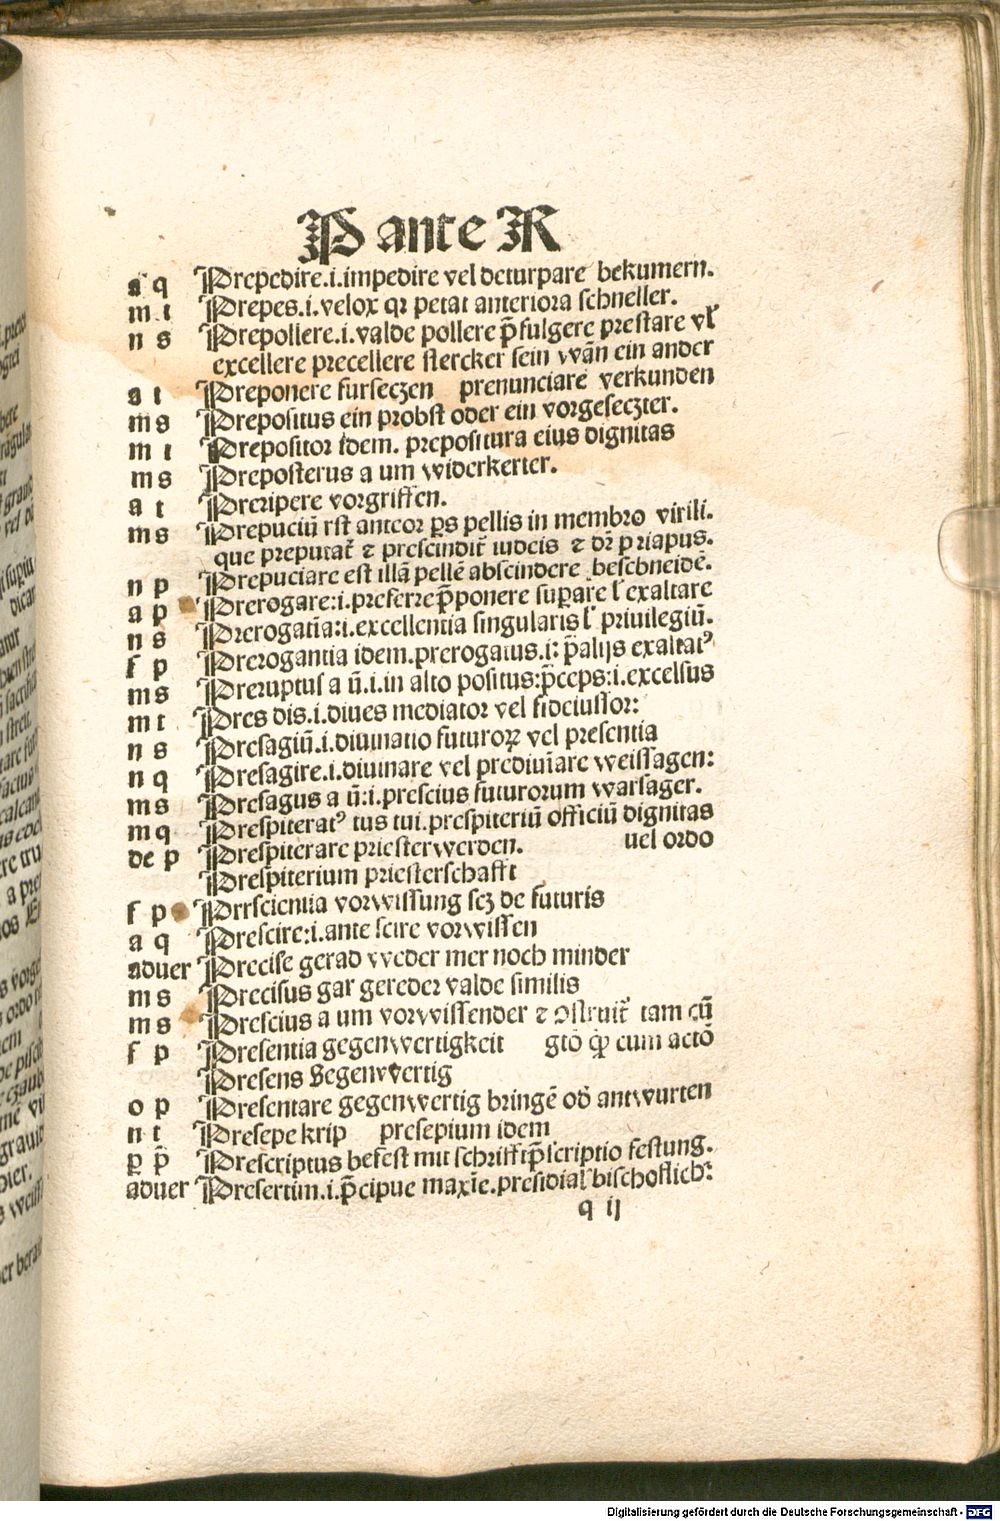 P ante R
a q Prepedire.i.impedire vel deturpare bekumern.
m t Prepes.i.velox qꝛ petat anteriora schneller.
n s Prepollere.i.valde pollere p̄fulgere prestare vl̕
excellere precellere stercker sein wān ein ander
a t Preponere furseczen prenunciare verkunden
m s Prepositus ein probst oder ein vorgeseczter.
m t Prepositor idem. prepositura eius dignitas
m s Preposterus a um widerkerter.
a t Preripere vorgriffen.
m s Prepuciū rst anteor ꝑs pellis in membro virili.
que preputat᷑ ⁊ prescindit᷑ iudeis ⁊ dr̄ priapus.
n p Prepuciare est illā pellē abscindere beschneidē.
a p Prerogare:i.preferre p̄ponere suꝑare l̕ exaltare
n s Prerogatīa:i.excellentia singularis l̕ priuilegiū.
f p Prerogantia idem.prerogatus.i: p̄ alijs exaltatꝰ
m s Preruptus a ū.i.in alto positus:p̄ceps:i.excelsus
m t Pres dis.i.diues mediator vel fideiussor:
n s Presagiū.i.diuinatio futuroꝝ vel presentia
n q Presagire.i.diuinare vel prediuīare weissagen:
m s Presagus a ū:i.prescius futurorum warsager.
m q Prespiteratꝰ tus tui.prespiteriū officiū dignitas
de p Prespiterare priesterwerden. uel ordo
Prespiterium priesterschafft
f p Prrscientia vorwissung scꝫ de futuris
a q Prescire:i.ante scire vorwissen
aduer Precise gerad weder mer noch minder
m s Precisus gar gereder valde similis
m s Prescius a um vorwissender ⁊ ꝯstruit᷑ tam cū
f p Presentia gegenwertigkeit gtō ꝙ cum actō
Presens Gegenwertig
o p Presentare gegenwertig bringē od̕ antwurten
n t Presepe krip presepium idem
ꝑ p̄ Prescriptus befest mit schrifft p̄scriptio festung.
aduer Presertim.i.p̄cipue maxīe.presidial̕ bischoflich:
q ij
Digitalisierung gefördert durch die Deutsche Forschungsgemeinschaft - DFG